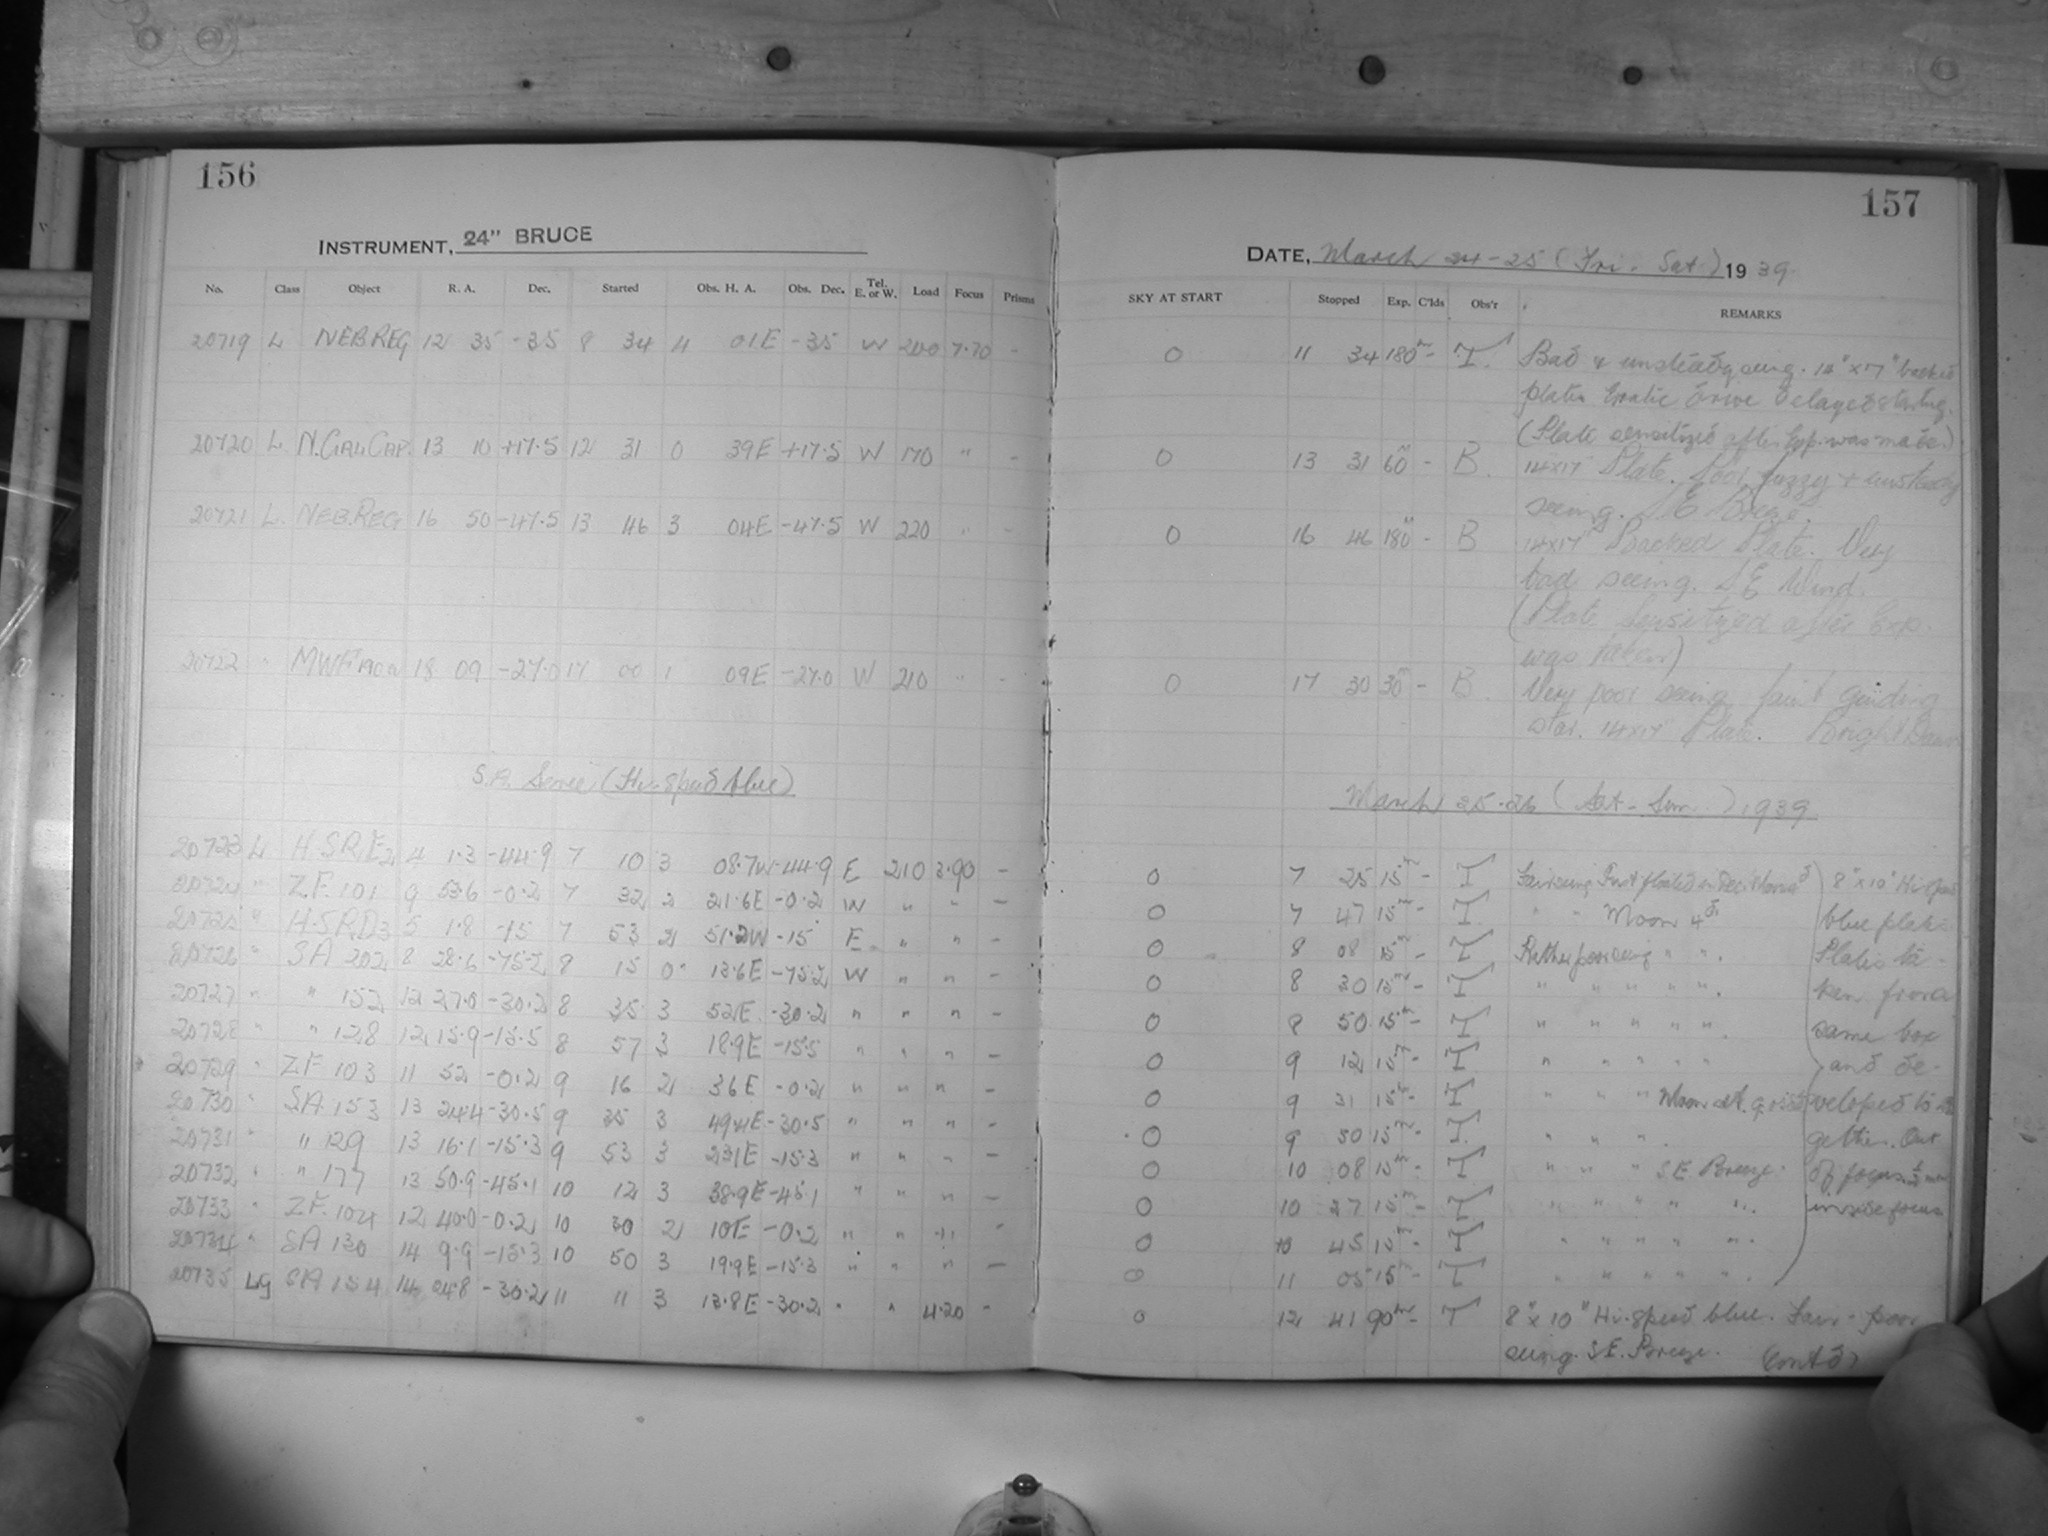 156
INSTRUMENT, 24" BRUCE
No. Class Object R. A. Dec. Started Obs. H. A. Obs. Dec. Tel. E. or W. Load Focus Prisms
20719 L NEB REG 12 35 -35 8 34 4 01E -35 W 200 7.70 -
20720 L N.GAL CAP. 13 10 +17.5 12 31 0 39E +17.5 W 170 " -
20721 L. NEB.REG 16 50 -47.5 13 46 3 04E -47.5 W 220 " -
20722 " MWF 18 09 -27.0 17 00 1 09E -27.0 W 210 " -
S.A. Series (Hi-speed blue)
20723 L HSR E2 4 1.3 -44.9 7 10 3 08.7W -44.9 E 210 3.90 -
20724 " Z.F. 101 9 53.6 -0.2 7 32 2 21.6E -0.2 W " " -
20725 " HSR D3 5 1.8 -15 7 53 2 51.2W -15 E " " -
20726 " SA 202 8 28.6 -75.2 8 15 0 13.6E -75.2 W " " -
20727 " " 152 12 27.0 -30.2 8 35 3 52E -30.2 " " " -
20728 " " 128 12 15.9 -15.5 8 57 3 18.9E -15.5 " " " -
20729 " Z.F 103 11 52 -0.2 9 16 2 36E -0.2 " " " -
20730 " SA 153 13 24.4 -30.5 9 35 3 49.4E -30.5 " " " -
20731 " " 129 13 16.1 -15.3 9 53 3 23.1E -15.3 " " " -
20732 " " 177 13 50.9 -45.1 10 12 3 38.9E -45.1 " " " -
20733 " Z.F. 104 12 40.0 -0.2 10 30 2 10E -0.2 " " " -
20734 " SA 130 14 9.9 -15.3 10 50 3 19.9E -15.3 " " " -
20735 LG SA 154 14 24.8 -30.2 11 11 3 13.8E -30.2 " " 4.20 -
157
DATE, March 24-25 (Fri. Sat.) 1939
SKY AT START Stopped Exp. C'lds Obs'r REMARKS
0 11 34 180m - T. Bad & unsteady seeing. 14"x17" backed
plate. Erratic drive delayed starting.
(Plate sensitized after Exp. was made)
0 13 31 60m - B. 14x17" Plate. Poor, fuzzy + unsteady
seeing. S E Breeze.
0 16 46 180m - B 14x17" Backed Plate. Very
bad seeing. S E Wind.
(Plate sensitized after Exp.
was taken)
0 17 30 30m - B. Very poor seeing faint guiding
star. 14x17" Plate. Bright Dawn
March 25-26 (Sat-Sun.) 1939
0 7 25 15m - T Fair seeing 8"x10" Hi-speed
0 7 47 15m - T " " Moon 4d. blue plate
0 8 08 15m - T Rather poor seeing " ". Plates ta-
0 8 30 15m - T " " " " ". ken from
0 8 50 15m - T " " " " ". same box
0 9 12 15m - T " " " " " and de-
0 9 31 15m - T " " " Moon veloped to
0 9 50 15m - T. " " " . gether. Out
0 10 08 15m - T " " " " S.E. Breeze. of focus
0 10 27 15m - T " " " " ". inside focus
0 10 45 15m - T " " " " ".
0 11 05 15m - T " " " " ".
0 12 41 90m - T 8"x10" Hi-speed blue. Fair - poor
seeing. S.E. Breeze. (Cont'd)